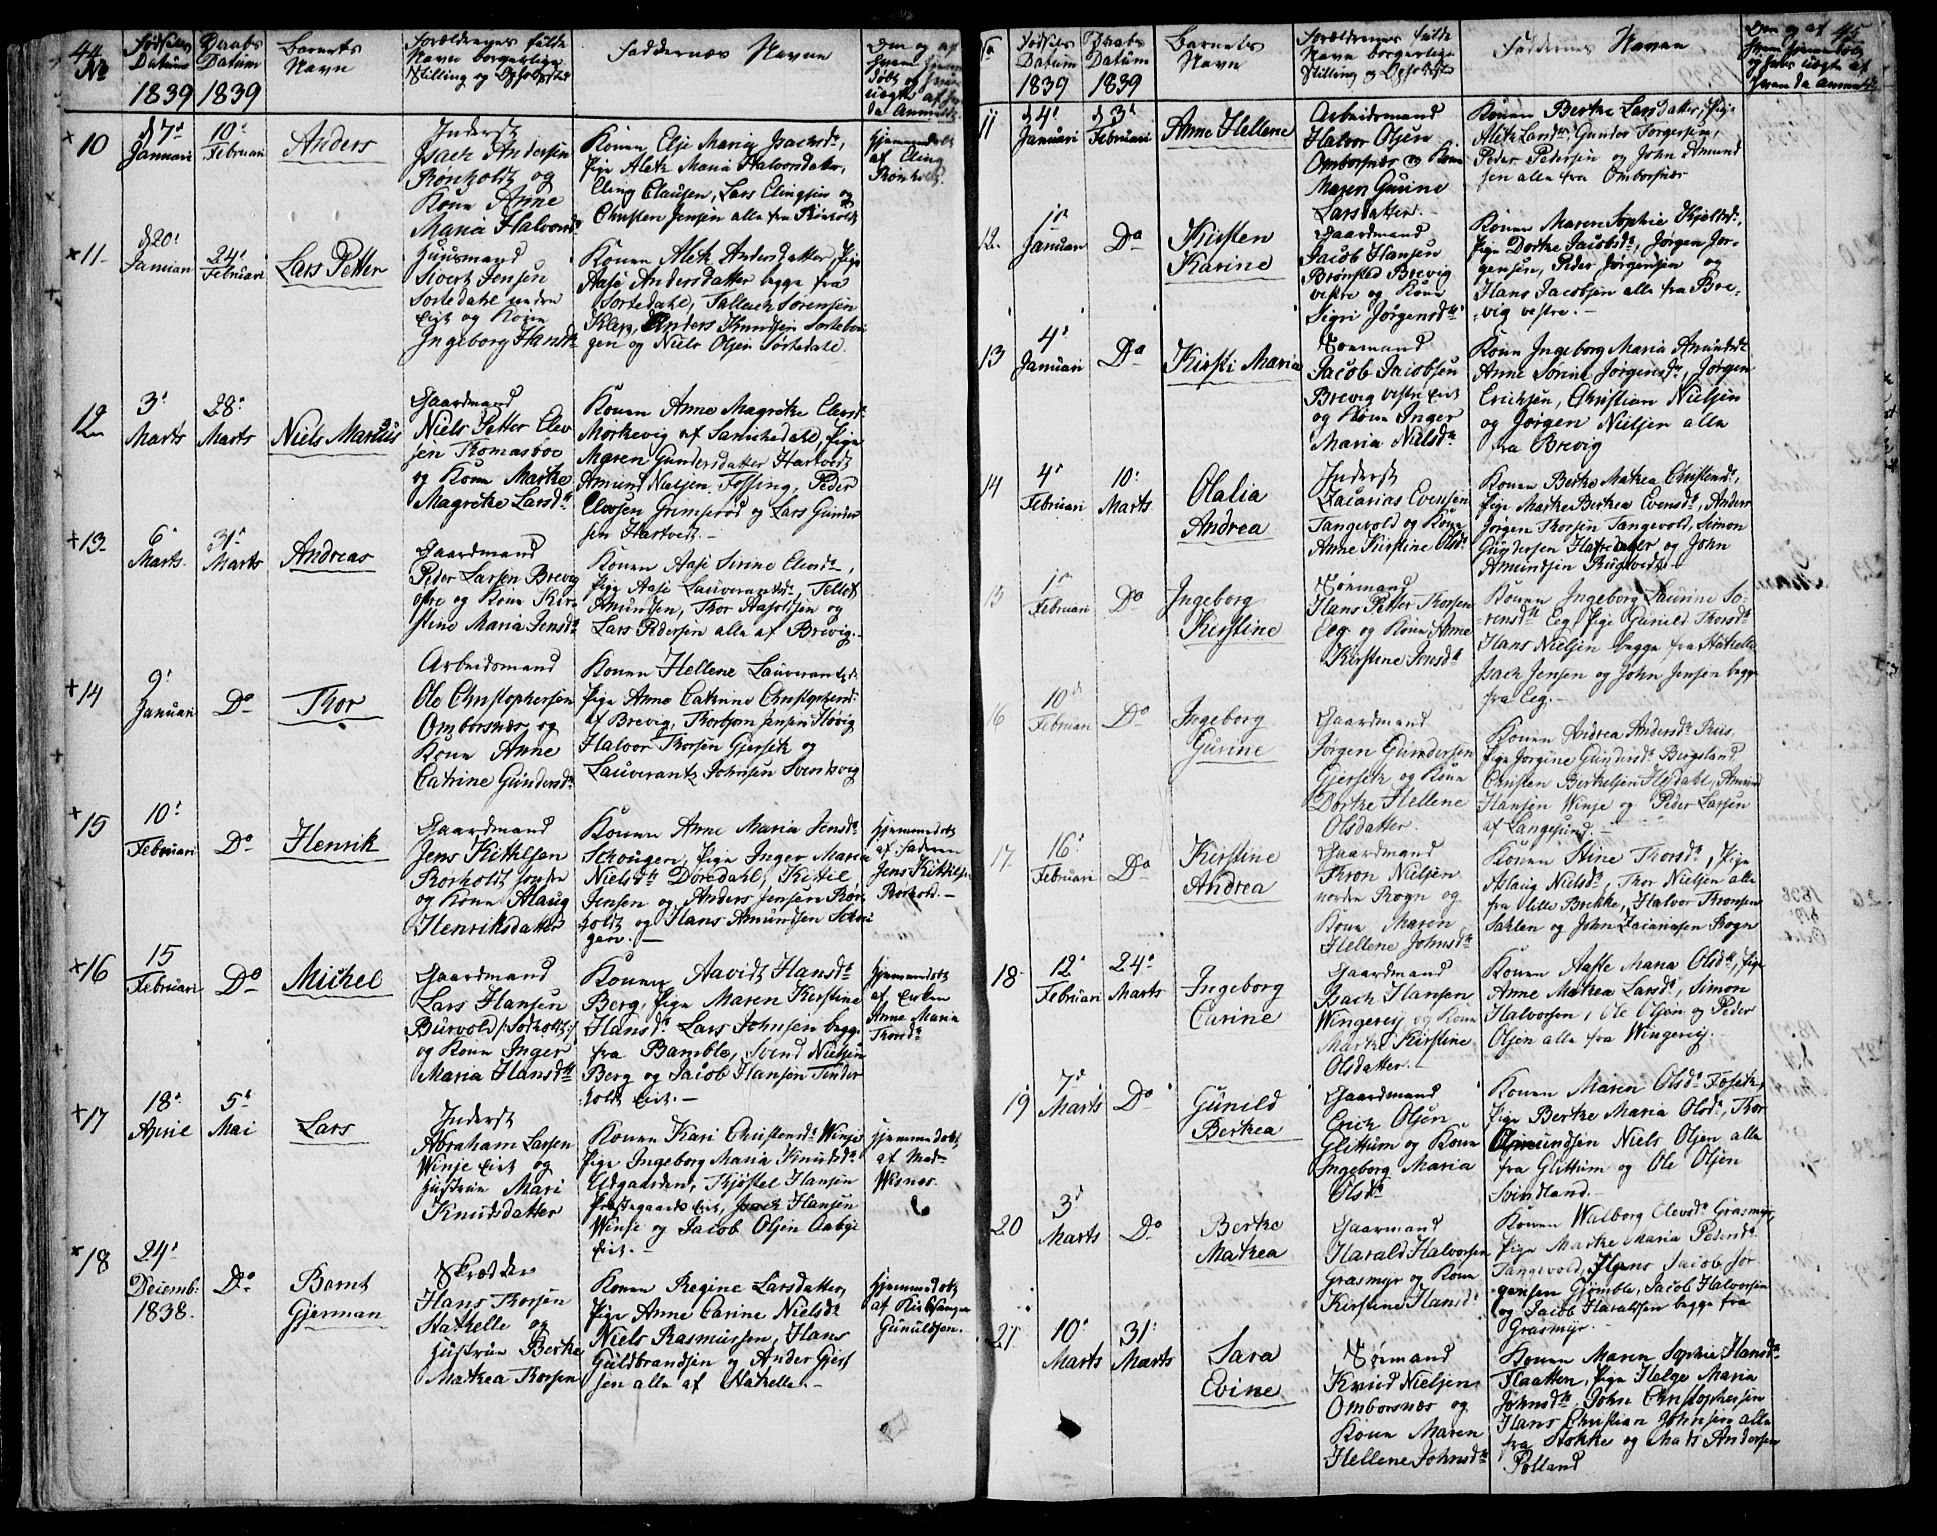 44
No
Fødsels Datum
1839
Daabs Datum
1839
Barnets Navn
Forældrenes fulde
Navn borgerlige
Stilling og Opholdssted
Faddernes Navne
10
d 7d
Januari
10d
Februari
Anders
Inderst
Isach Andersen
Ronholdt og
Kone Anne
Maria Halvorsd
Konen Elje Maria Isachsdr,
Pige Aleth Maria Halvorsdatter,
Eling Clausen, Lars Elingsen og
Christen Jensen alle fra Ronholdt
hjemmedøbt
af Eling
Rønholt
11
d 20d
Januari
24d
Februari
Lars Petter
Huusmand
Sivert Jensen
Sortedahl under
Eeg og Kone
Ingeborg Hansdr
Konen Aleth Andersdatter, Pige
Aase Andersdatter begge fra
Sortedahl, Tallach Sørensen
Klep, Anders Knudsen Sortebo
gen og Niels Olsen Sortedahl.
12
3d
Marts
28d
Marts
Niels Marius
Gaardmand
Niels Petter Elev
sen Thomasboe
og Kone Marthe
Magrethe Larsdr
Konen Anne Magrethe Elevsdr
Morkevig af Sannikedahl, Pige
Maren Gundersdatter Hartvedt
Amund Nielsen Fossing, Peder
Elevsen Grimsrød og Lars Gunder
sen Hartvedt.
13
6d
Marts
31d
Marts
Andreas
Gaardmand
Peder Larsen Brevig
østre og Kone Kir-
stine Maria Jensdr
Konen Aase Sirine Elevsdr,
Pige Aase Lauverantsdr, Tellef
Amundsen, Thor Aasoldsen og
Lars Pedersen alle af Brevig.
14
9d
Januari
Do
Thor
Arbeidsmand
Ole Christophersen
Omborsnæs og
Kone Anne
Catrine Gundersdr
Konen Hellene Lauverantsdr
Pige Anne Catrine Christophersdr
af Brevig, Thorbjørn Jensen Høvig
Halvor Thorsen Gjerseth og
Lauverantz Johnsen Svenkvig
15
10d
Februari
Do
Henrik
Gaardmand
Jens Kithilsen
Rorholdt søndre
og Kone Aslaug
Henriksdatter
Konen Anne Maria Jensdr
Schougen, Pige Inger Maria
Nielsdr Dørdahl, Kitil
Jensen og Anders Jensen Rør
holdt og Hans Amundsen Schou
gen.
hjemmedøbt
af Faderen
Jens Kittilsen
Rorholt
16
15
Februari
Do
Michel
Gaardmand
Lars Hansen
Burvold /:Sodholt:/
og Kone Inger
Maria Hansdr
Konen Aavidt Hansdr
Berg, Pige Maren Kirstine
Hansdr Lars Johnsen begge
fra Bamble, Svend Nielsen
Berg og Jacob Hansen Tinder
holdt Eid.
hjemmedøbt
af Enken
Anne Maria
Thordr
17
18d
April
5d
Mai
Lars
Inderst
Abraham Larsen
Winje Eid og
Hustrue Mari
Knudsdatter
Konen Kari Christensdr Winje
Pige Ingeborg Maria Knudsdr
Udgaarden, Kjøstel Hansen
Præstegaards Eid, Isach Hansen
Winje og Jacob Olsen Aabye
Eid.
hjemmedøbt
af Mad
Wisnes
18
24d
Decemb:
1838.
Do
Bernt
Gjerman
Skrædder
Hans Thorsen
Stathelle og
Hustrue Berthe
Mathea Thorsen
Konen Regine Larsdatter,
Pige Anne Carine Nielsdr
Niels Rasmussen, Hans
Guldbrandsen og Ander Gjert
sen alle af Stathelle.
hjemmedøbt
Gunuldsen.
45
No
Fødsels Datum
1839
Daabs Datum
1839
Barnets
Navn
Forældrenes fulde
Navn borgerlige
Stilling og Opholdssted
Faddernes Navne
11
d 4d
Januari
d 3d
Februari
Anne Hellene
Arbeidsmand
Halvor Olsen
Omborsnæs og Kone
Maren Gurine
Larsdatter.
Konen Berthe Larsdatter, Pige
Aleth Larsdr Gunder Torgersen,
Peder Pedersen og John Amund
sen alle fra Omborsnæs
12
Januari
Do
Kirsten
Karine
Gaardmand
Jacob Hansen
Brønsted Brevig
vestre og Kone
Sigri Jørgensdr
Konen Maren Sophie Kjeldsdr,
Pige Dorthe Jacobsdr, Jørgen Jør-
gensen, Peder Jørgensen og
Hans Jacobsen alle fra Bre-
vig vestre.
13
4d
Januari
Do
Kirsti Maria
Sømand
Jacob Jacobsen
Brevig vestre Eid
og Kone Inger
Maria Nielsdr
Kone Ingeborg Maria Amundsdr
Anne Sorine Jørgensdr, Jørgen
Erichsen, Christian Nielsen
og Jørgen Nielsen alle
fra Brevig
14
4d
Februari
10d
Marts
Olalia
Andrea
Inderst
Zacarias Evensen
Tangevold og Kone
Anne Kirstine Olsdr
Konen Berthe Mathea Christensdr,
Pige Marthe Berthea Evensdr, Anders
Jørgen Thorsen Tangevold, Simon
Gundersen Hafredager og John
Amundsen Rugtvedt
15
Februari
Do
Ingeborg
Kirstine
Sømand
Hans Petter Thorsen
Eeg og Kone Anne
Kirstine Jensdr
Konen Ingeborg Laurine Sø-
rensdr Eeg, Pige Gunild Thorsdr
Hans Nielsen begge fra Stathelle
Isach Jensen og John Jensen begge
fra Eeg.
16
10d
Februari
Do
Ingeborg
Gurine
Gaardmand
Jørgen Gundersen
Gjerseth og Kone
Dorthe Hellene
Olsdatter.
Konen Andrea Andersdr Riis,
Pige Jorgine Gundersdr Bergsland,
Christen Berthelsen Hegdahl, Amund
Hansen Winje og Peder Larsen
af Langesund.
17
16d
Februari
Do
Kirstine
Andrea
Gaardmand
Thron Nielsen
nordre Rogn og
Kone Maren
Hellene Johnsdr
Konen Stine Thorsdr, Pige
Aslaug Nielsdr, Thor Nielsen alle
fra lille Brekke, Halvor Thronsen
Sahlen og John Zacariasen Rogn
18
12d
Februari
24d
Marts
Ingeborg
Carine
Gaardmand
Isach Hansen
Wingereiy og Kone
Marthe Kirstine
Olsdatter.
Konen Aaste Maria Olsdr, Pige
Anne Mathea Larsdr, Simon
Halvorsen, Ole Olsen og Peder
Olsen alle fra Wingereiy.
19
7d
Marts
Do
Gunild
Berthea
Gaardmand
Erich Olsen
Glittum og Kone
Ingeborg Maria
Olsdr
Konen Maren Olsdr Foseth,
Pige Berthe Maria Olsdr, Thor
Osmundsen Niels Olsen alle
fra Glittum og Ole Olsen
Svindland.
20
3d
Marts
Do
Berthe
Mathea
Gaarmand
Harald Halvorsen
Grasmyr og Kone
Kirstine Hansdr
Konen Walborg Elevsdr Grasmyr,
Pige Marthe Maria Pedersdr
Tangevold, Hans Jacob Jør
gensen Gjømble, Jacob Halvorsen
og Jacob Haraldsen begge fra
Grasmyr.
21
10d
Marts
31d
Marts
Sara
Evine
Sømand
Knud Nielsen
Omborsnæs og
Kone Maren
Hellene Johnsdr
Konen Maren Sophie Hansdr
Flaatten, Pige Helge Maria
Johnsdr, John Christophersen
Hans Christian Johnsen alle
fra Stokke og Mads Andersen
Polland